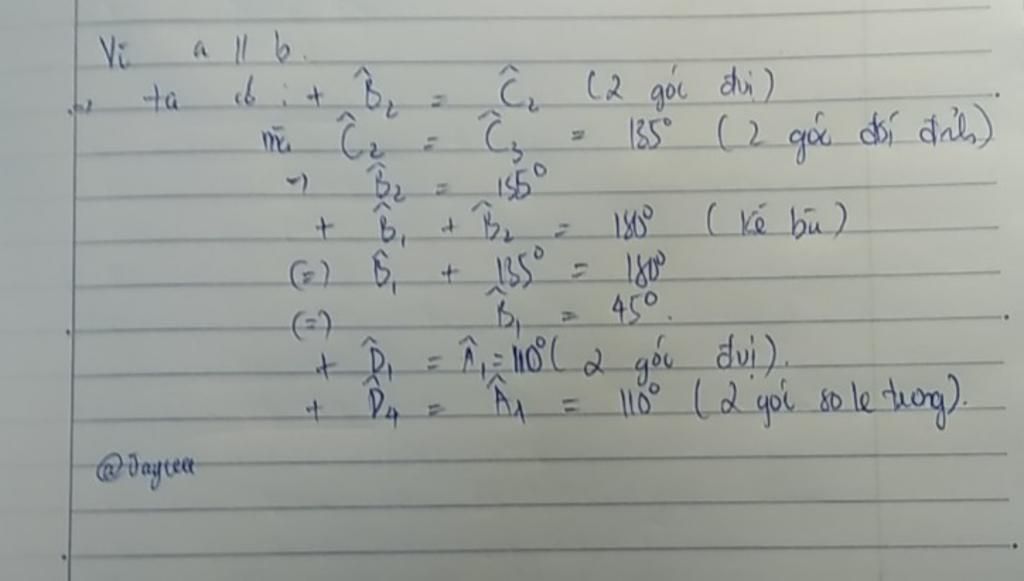 Vì a // b.
ta có : + B̂₂ = Ĉ₂ (2 góc đvị)
mà Ĉ₂ = Ĉ₃ = 135⁰ (2 góc đối đỉnh)
=) B̂₂ = 135⁰
+ B̂₁ + B̂₂ = 180⁰ (kề bù)
(=) B̂₁ + 135⁰ = 180⁰
(=) B̂₁ = 45⁰.
+ D̂₁ = Â₁ = 110⁰ (2 góc đvị).
+ D̂₄ = Â₁ = 110⁰ (2 góc so le trong).